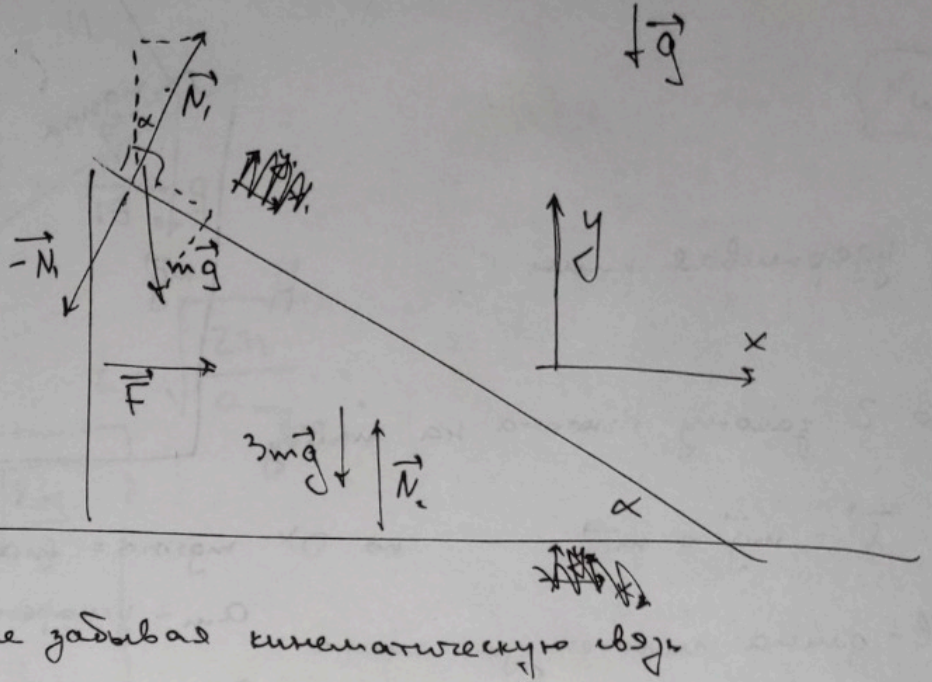 g
N₁
α
-N₁
mg
y
x
F
3mg
N₂
α
е забывая кинематическую связь